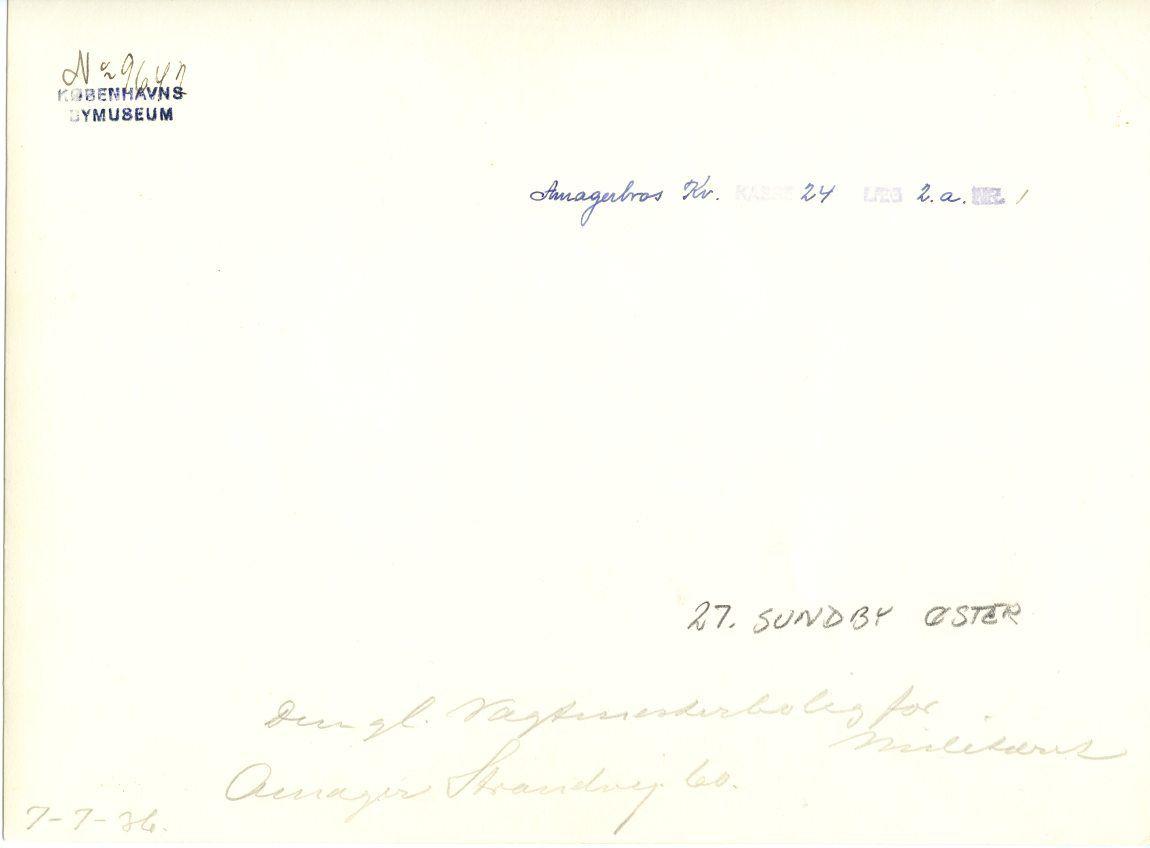 No 9647
KØBENHAVNS
BYMUSEUM
Amagerbros Kv. KASSE 24 LÆG 2.a. NR. 1
27. SUNDBY ØSTER
Den gl. Vagtmesterbolig for
Militæret
Amager Strandvej 60.
7-7-36.